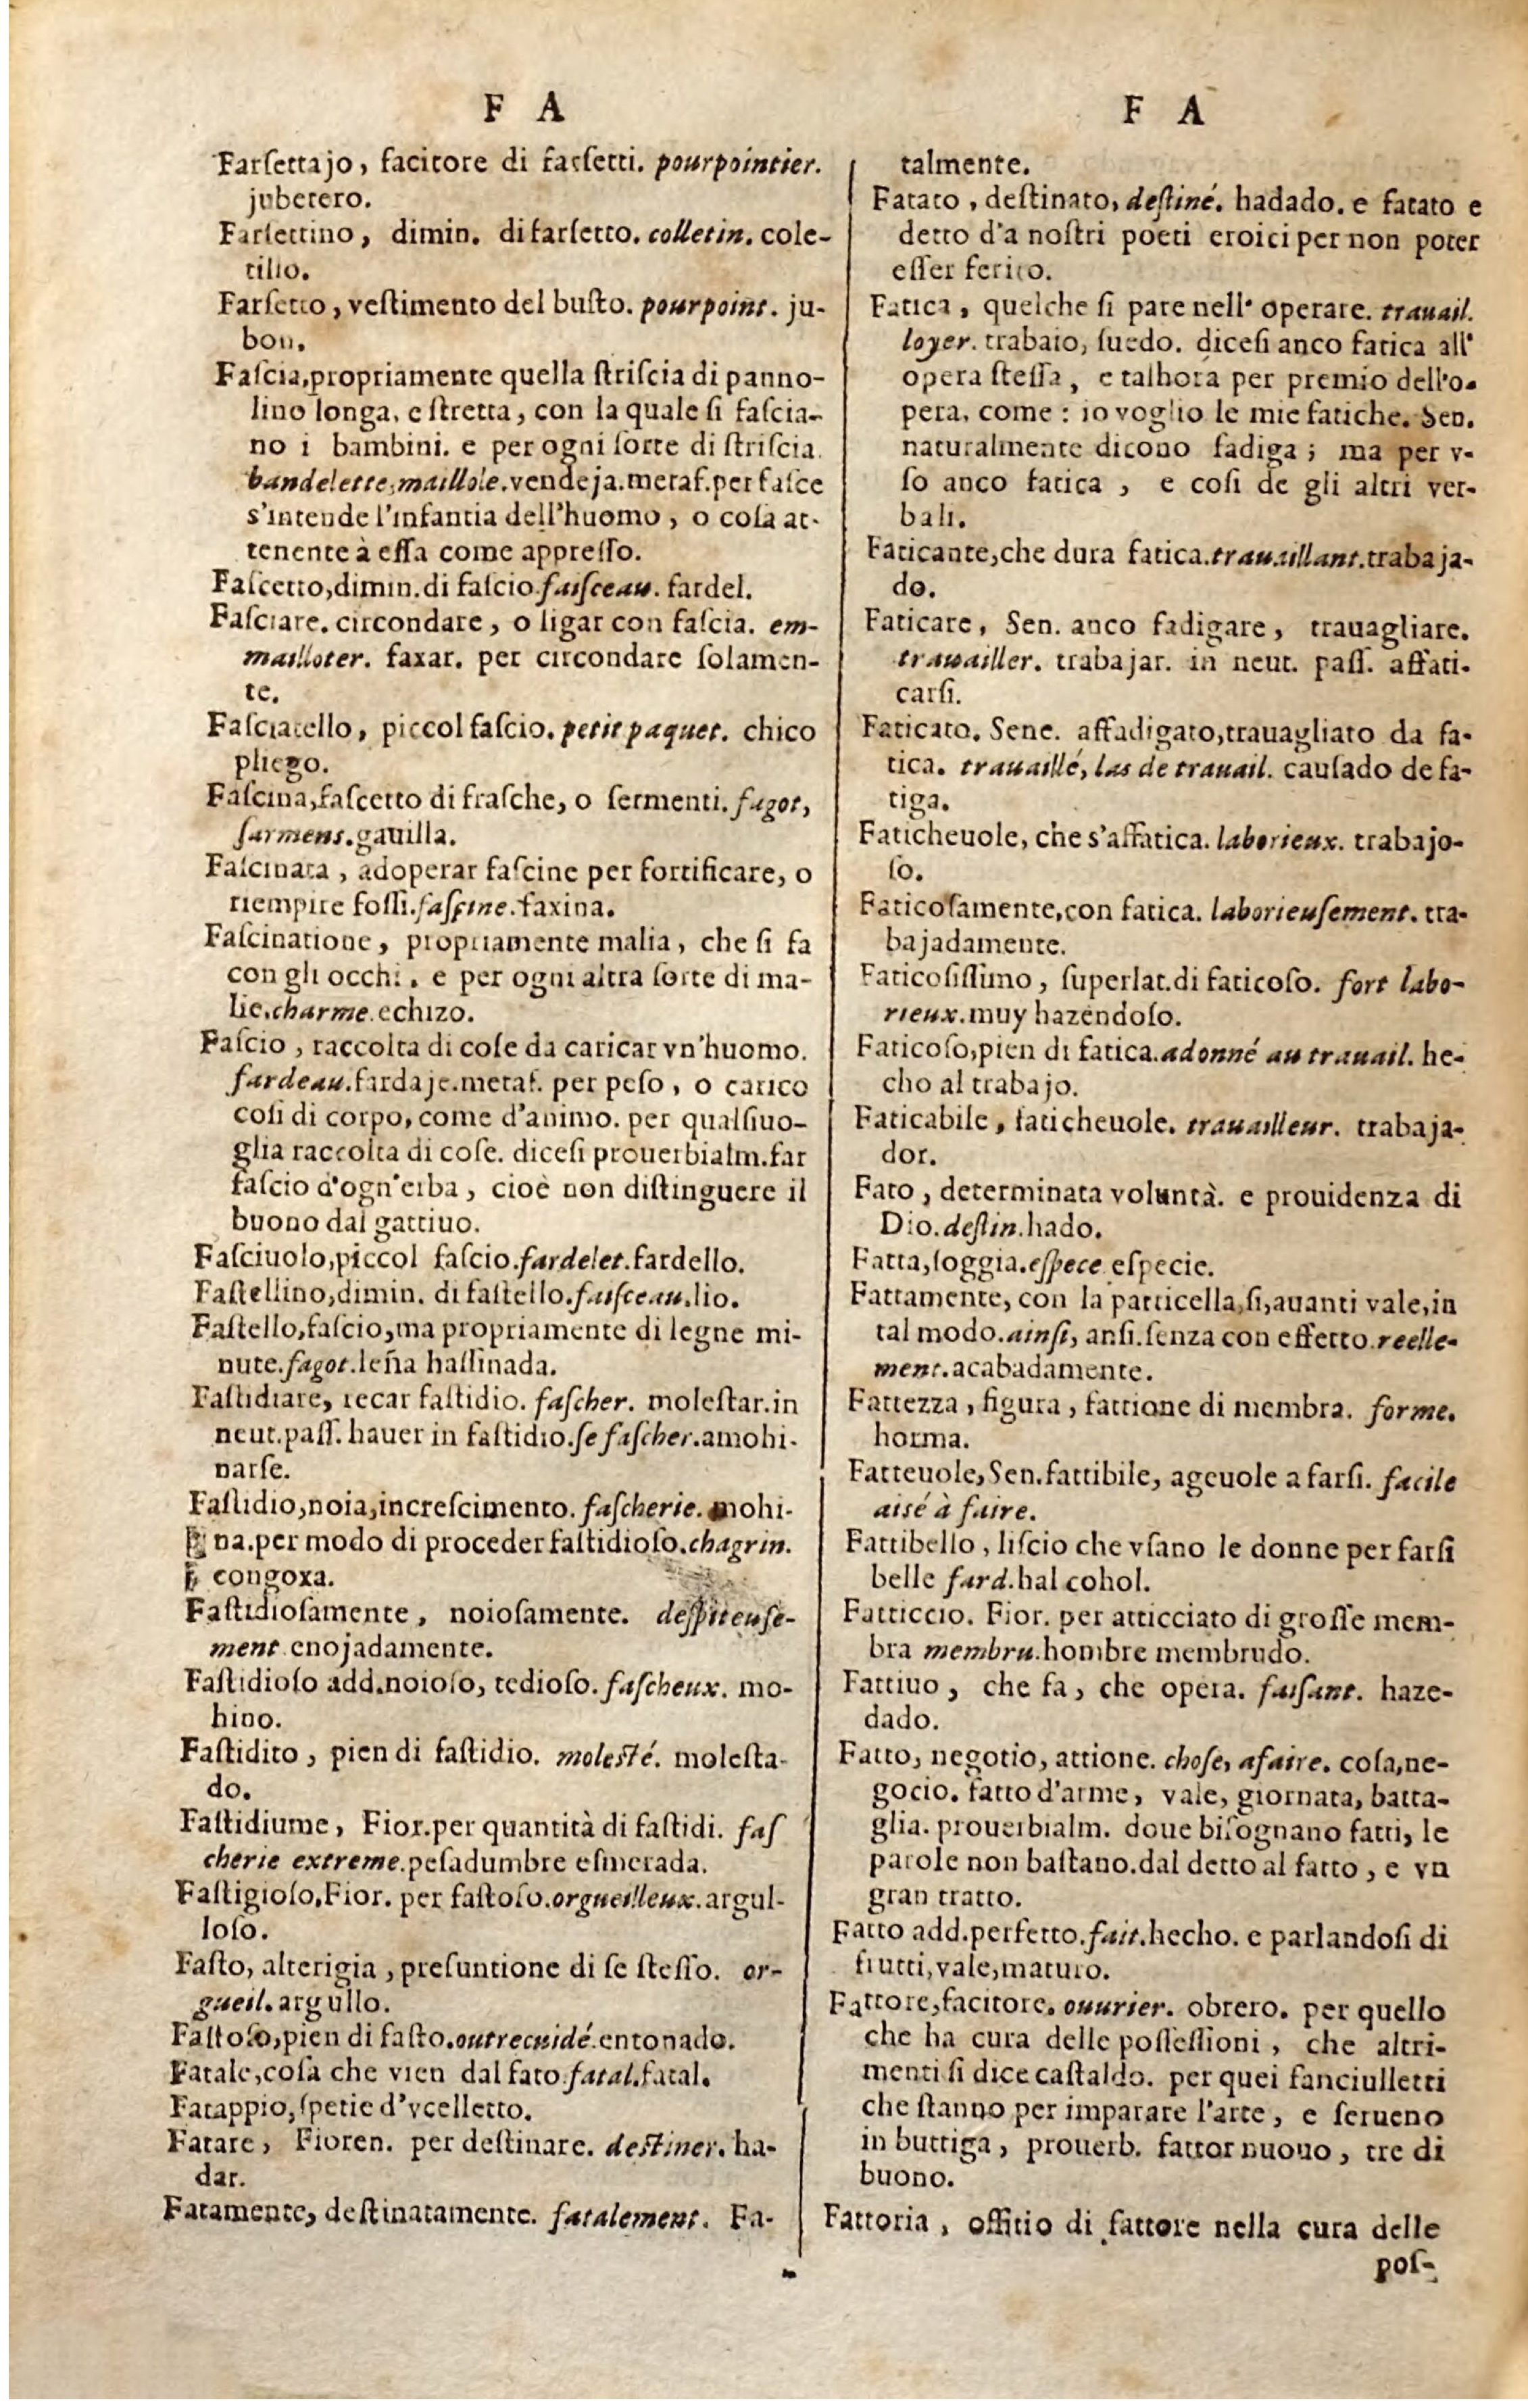 F A
Farſettajo, facitore di farſetti. pourpointier.
jubetero.
Farſettino, dimin. di farſetto. colletin. cole-
tillo.
Farſetto, veſtimento del buſto. pourpoint. ju-
bon.
Faſcia, propriamente quella ſtriſcia di panno-
lino longa, e ſtretta, con la quale ſi faſcia-
no i bambini. e per ogni ſorte di ſtriſcia.
bandelette, maillole. vendeja. metaf. per faſce
s'intende l'infantia dell'huomo, o coſa at-
tenente à eſſa come appreſſo.
Faſcetto, dimin. di faſcio. faiſceau. fardel.
Faſciare. circondare, o ligar con faſcia. em-
mailloter. faxar. per circondare ſolamen-
te.
Faſciatello, piccol faſcio. petit paquet. chico
pliego.
Faſcina, faſcetto di fraſche, o ſermenti. fagot,
ſarmens. gavilla.
Faſcinata, adoperar faſcine per fortificare, o
riempire foſſi. faſcine. faxina.
Faſcinatione, propriamente malia, che ſi fa
con gli occhi. e per ogni altra ſorte di ma-
lie. charme. echizo.
Faſcio, raccolta di coſe da caricar vn'huomo.
fardeau. fardaje. metaf. per peſo, o carico
coſi di corpo, come d'animo. per qualſiuo-
glia raccolta di coſe. diceſi prouerbialm. far
faſcio d'ogn'erba, cioè non diſtinguere il
buono dal gattiuo.
Faſciuolo, piccol faſcio. fardelet. fardello.
Faſtellino, dimin. di faſtello. faiſceau. lio.
Faſtello, faſcio, ma propriamente di legne mi-
nute. fagot. leña haſſinada.
Faſtidiare, recar faſtidio. faſcher. moleſtar. in
neut. paſſ. hauer in faſtidio. ſe faſcher. amohi-
narſe.
Faſtidio, noia, increſcimento. faſcherie. mohi-
na. per modo di proceder faſtidioſo. chagrin.
congoxa.
Faſtidioſamente, noioſamente. deſpiteuſe-
ment. enojadamente.
Faſtidioſo add. noioſo, tedioſo. faſcheux. mo-
hino.
Faſtidito, pien di faſtidio. moleſté. moleſta-
do.
Faſtidiume, Fior. per quantità di faſtidi. faſ
cherie extreme. peſadumbre eſmerada.
Faſtigioſo, Fior. per faſtoſo. orgueilleux. argul-
loſo.
Faſto, alterigia, preſuntione di ſe ſteſſo. or-
gueil. argullo.
Faſtoſo, pien di faſto. outrecuidé. entonado.
Fatale, coſa che vien dal fato. fatal. fatal.
Fatappio, ſpetie d'vcelletto.
Fatare, Fioren. per deſtinare. deſtiner. ha-
dar.
Fatamente, deſtinatamente. fatalement. Fa-
F A
talmente.
Fatato, deſtinato, deſtiné. hadado. e fatato e
detto d'a noſtri poeti eroici per non poter
eſſer ferito.
Fatica, quelche ſi pate nell' operare. trauail.
loyer. trabaio, ſuedo. diceſi anco fatica all'
opera ſteſſa, e talhora per premio dell'o-
pera, come: io voglio le mie fatiche. Sen.
naturalmente dicono fadiga; ma per v-
ſo anco fatica, e coſi de gli altri ver-
bali.
Faticante, che dura fatica. trauaillant. trabaja-
do.
Faticare, Sen. anco fadigare, trauagliare.
trauailler. trabajar. in neut. paſſ. affati-
carſi.
Faticato. Sene. affadigato, trauagliato da fa-
tica. trauaillé, las de trauail. cauſado de fa-
tiga.
Faticheuole, che s'affatica. laborieux. trabajo-
ſo.
Faticoſamente, con fatica. laborieuſement. tra-
bajadamente.
Faticoſiſſimo, ſuperlat. di faticoſo. fort labo-
rieux. muy hazendoſo.
Faticoſo, pien di fatica. adonné au trauail. he-
cho al trabajo.
Faticabile, faticheuole. trauailleur. trabaja-
dor.
Fato, determinata voluntà. e prouidenza di
Dio. deſtin. hado.
Fatta, ſoggia. eſpece. eſpecie.
Fattamente, con la particella, ſi, auanti vale, in
tal modo. ainſi, anſi. ſenza con effetto. reelle-
ment. acabadamente.
Fattezza, figura, fattione di membra. forme.
horma.
Fatteuole, Sen. fattibile, ageuole a farſi. facile
aisé à faire.
Fattibello, liſcio che vſano le donne per farſi
belle fard. hal cohol.
Fatticcio. Fior. per atticciato di groſſe mem-
bra membru. hombre membrudo.
Fattiuo, che fa, che opera. faiſant. haze-
dado.
Fatto, negotio, attione. choſe, afaire. coſa, ne-
gocio. fatto d'arme, vale, giornata, batta-
glia. prouerbialm. doue biſognano fatti, le
parole non baſtano. dal detto al fatto, e vn
gran tratto.
Fatto add. perfetto. fait. hecho. e parlandoſi di
frutti, vale, maturo.
Fattore, facitore. ouurier. obrero. per quello
che ha cura delle poſſeſſioni, che altri-
menti ſi dice caſtaldo. per quei fanciulletti
che ſtanno per imparare l'arte, e ſerueno
in buttiga, prouerb. fattor nuouo, tre di
buono.
Fattoria, offitio di fattore nella cura delle
poſ-